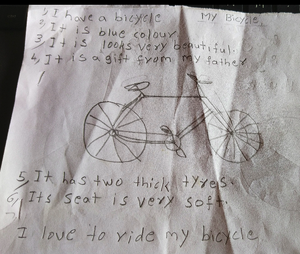 My Bicycle
1, I have a bicycle
2, It is blue colour
3, It is looks very beautiful.
4, It is a gift from my father
5, It has two thick tyres.
6, Its seat is very soft.
7
I love to ride my bicycle